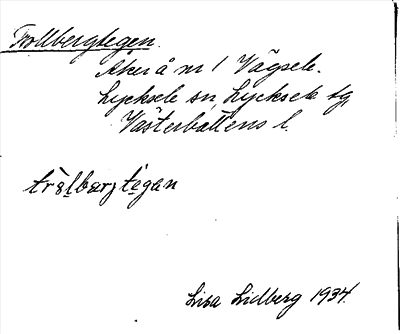 Trollbergtegen.
Åker å nr 1 Vägsele.
Lycksele sn, Lycksele tg,
Västerbottens l.
tròlbærjtègan
Lisa Lidberg 1934.